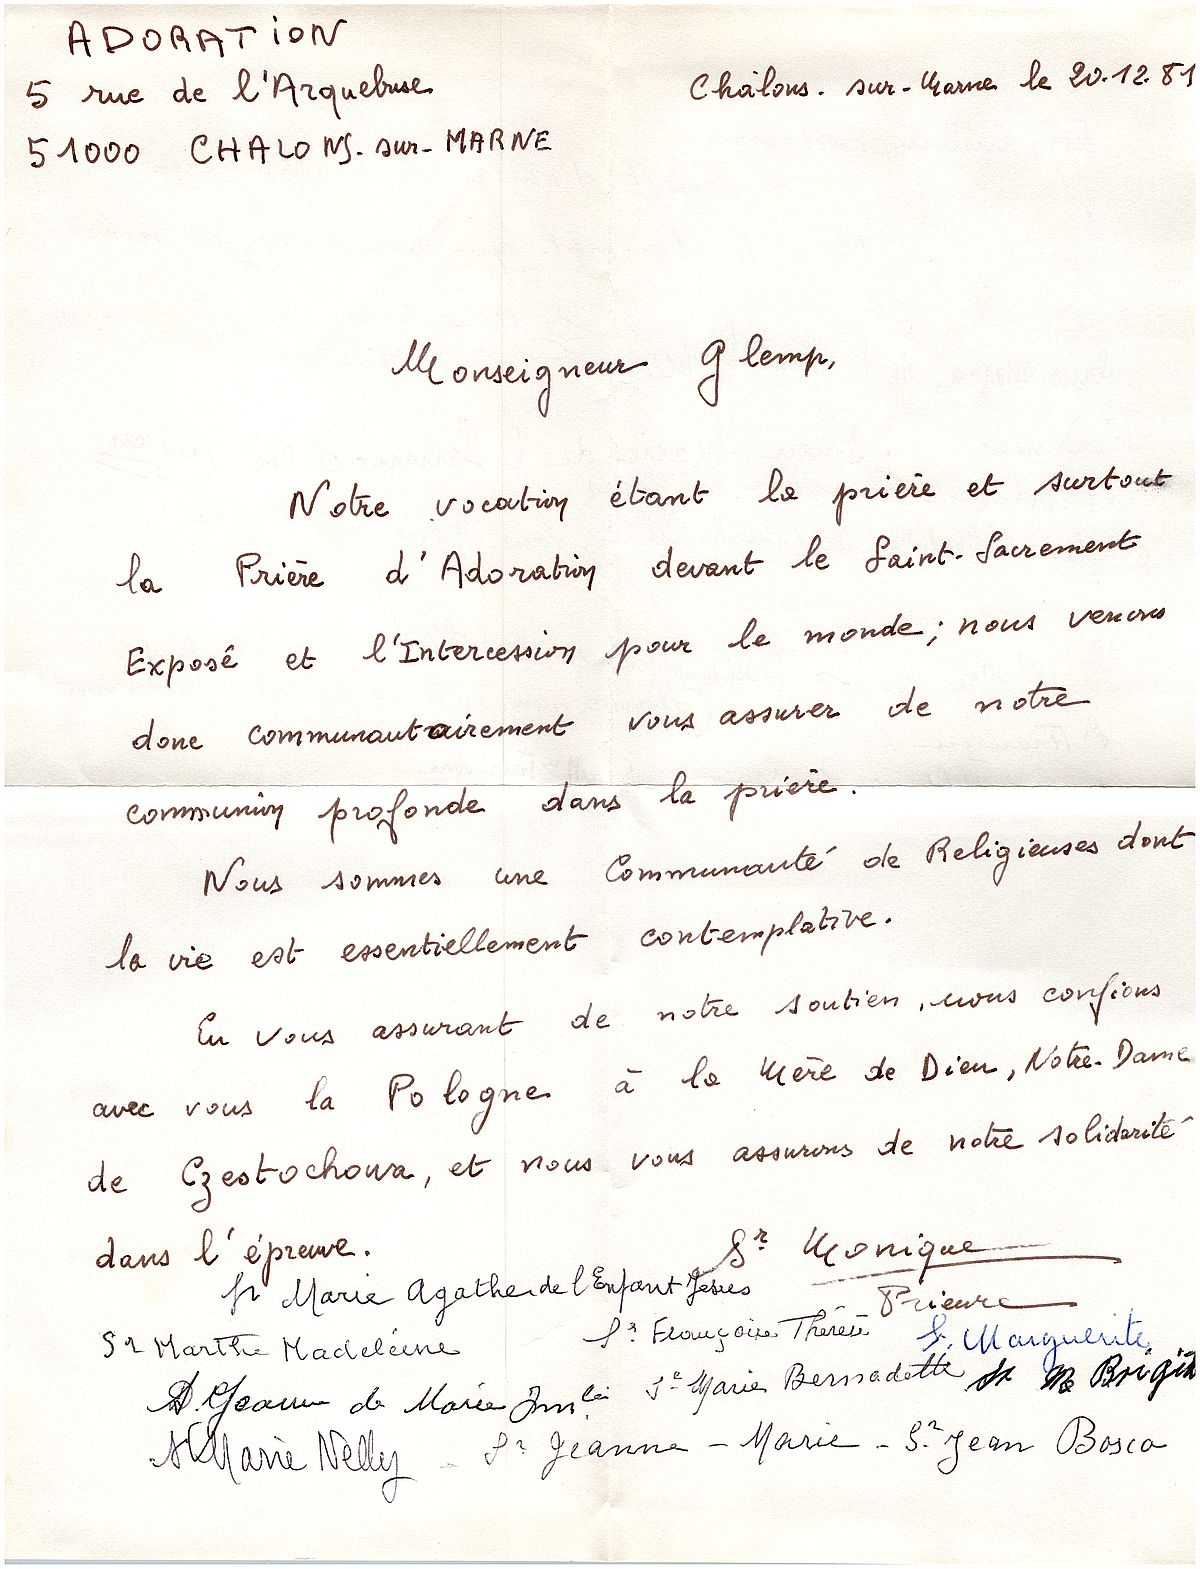 ADORATION
5 rue de l'Arquebuse
51000 CHALONS-sur-MARNE
Châlons-sur-Marne le 20.12.81
Monseigneur Glemp,
Notre vocation étant la prière et surtout
la Prière d'Adoration devant le Saint-Sacrement
Exposé et l'Intercession pour le monde; nous venons
donc communautairement vous assurer de notre
communion profonde dans la prière.
Nous sommes une Communauté de Religieuses dont
la vie est essentiellement contemplative.
En vous assurant de notre soutien, nous confions
avec vous la Pologne à la Mère de Dieu, Notre-Dame
de Czestochowa, et nous vous assurons de notre solidarité
dans l'épreuve.
Sr Monique
Prieure
Sr Marie Agathe de l'Enfant Jésus
Sr Marthe Madeleine
Sr Françoise Thérèse
S. Marguerite
Sr Jeanne de Marie Im.lée
Sr Marie Bernadette
Sr M Brigit
Sr Marie Nelly - Sr Jeanne-Marie - Sr Jean Bosco